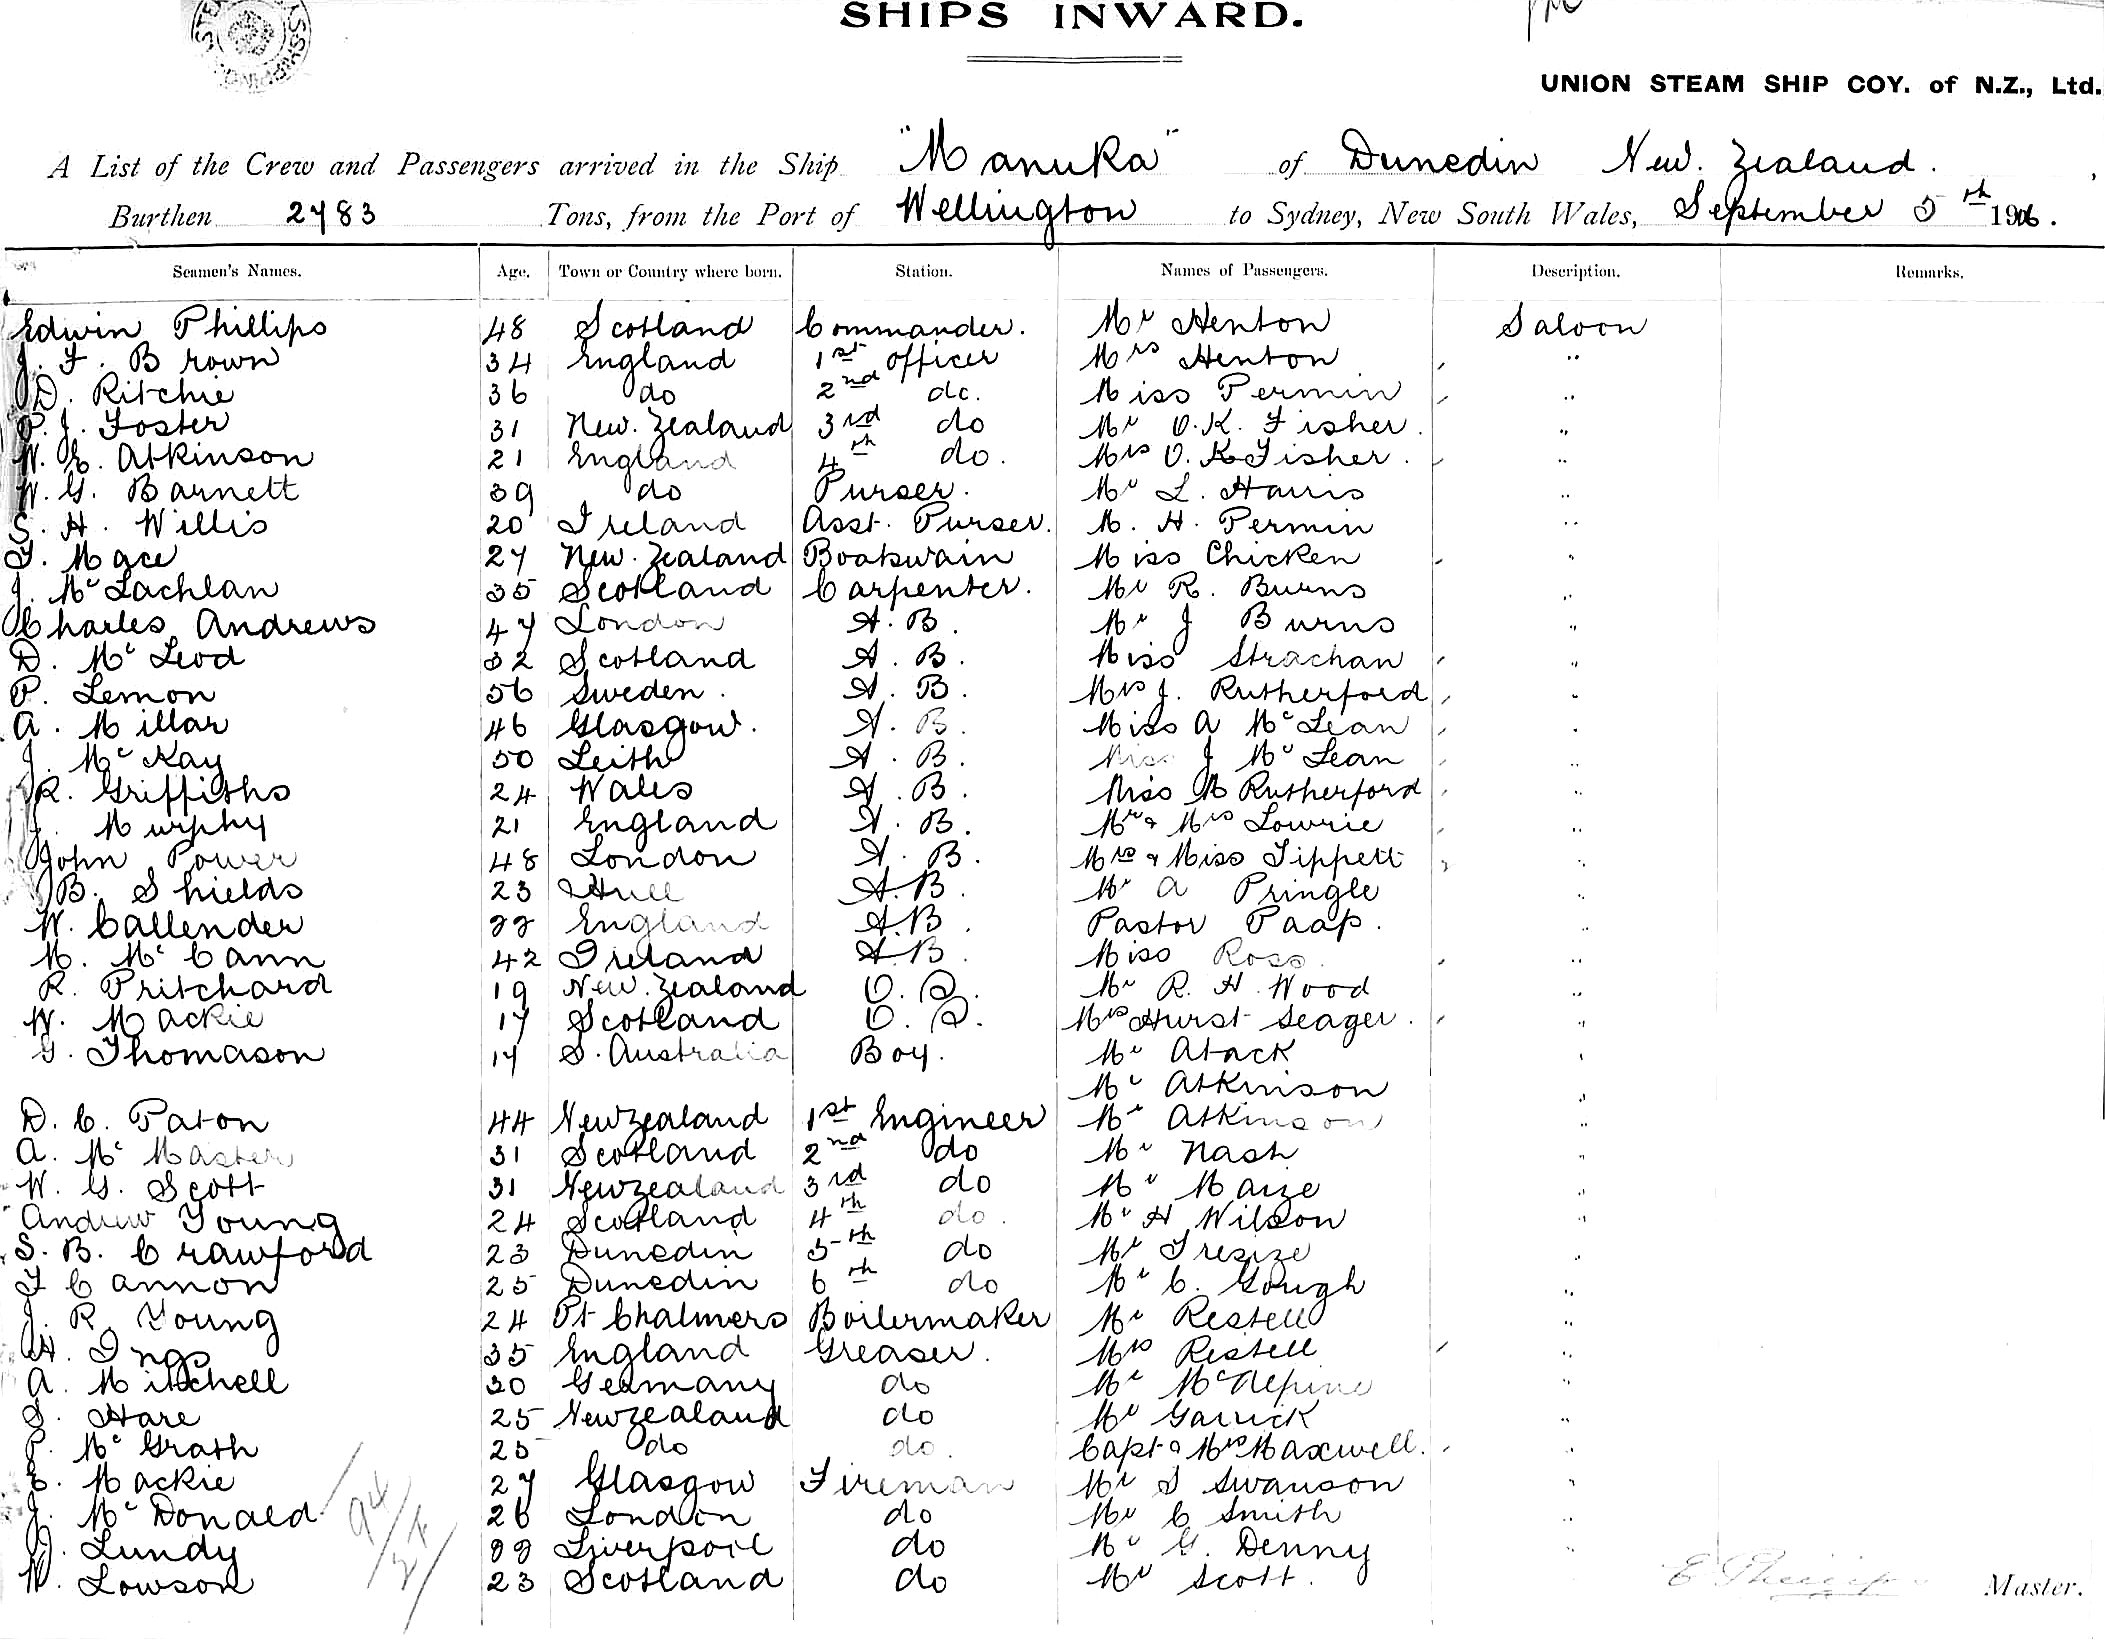 SHIPS INWARD.
UNION STEAM SHIP COY. of N.Z., Ltd.
A List of the Crew and Passengers arrived in the Ship "Manuka" of Dunedin New. Zealand.
Burthen 2783 Tons, from the Port of Wellington to Sydney, New South Wales, September 5th 1906.
Seamen's Names. Age. Town or Country where born. Station. Names of Passengers. Description. Remarks.
Edwin Phillips 48 Scotland Commander. Mr Henton Saloon
J. F. Brown 34 England 1st officer Mrs Henton "
D. Ritchie 36 do 2nd do. Miss Permin "
P. J. Foster 31 New. Zealand 3rd do Mr O. K. Fisher. "
W. E. Atkinson 21 England 4th do. Mrs O. K Fisher. "
W. G. Barnett 39 do Purser. Mr L. Harris "
S. H. Willis 20 Ireland Asst. Purser. M. H. Permin "
T. Mace 27 New. Zealand Boatswain Miss Chicken "
J. McLachlan 35 Scotland Carpenter. Mr R. Burns "
Charles Andrews 47 London A. B. Mr J Burns "
D. McLeod 32 Scotland A. B. Miss Strachan "
P. Lemon 56 Sweden. A. B. Mrs J. Rutherford "
A. Millar 46 Glasgow. A. B. Miss A McLean "
J. McKay 50 Leith A. B. Miss J McLean "
R. Griffiths 24 Wales A. B. Miss M Rutherford "
J. Murphy 21 England A. B. Mr & Mrs Lowrie "
John Power 48 London A. B. Mrs & Miss Tippett "
B. Shields 23 Hull A. B. Mr A Pringle "
W. Callender 22 England A. B. Pastor Paap. "
M. McCann 42 Ireland A. B. Miss Ross. "
R. Pritchard 19 New. Zealand O. S. Mr R. H. Wood "
W. Mackie 17 Scotland O. S. Mrs Hurst Seager. "
G. Thomason 17 S. Australia Boy. Mr Atack "
Mr Atkinson "
D. C. Paton 44 Newzealand 1st Engineer Mr Atkinson "
A. McMaster 31 Scotland 2nd do Mr Nash "
W. G. Scott 31 Newzealand 3rd do Mr Maize "
Andrew Young 24 Scotland 4th do. Mr H Wilson "
S. B. Crawford 23 Dunedin 5th do Mr Tresize "
T Cannon 25 Dunedin 6th do Mr C. Gough "
J. R. Young 24 Pt Chalmers Boilermaker Mr Restell "
H. Ings 35 England Greaser. Mrs Restell "
A. Mitchell 30 Germany do Mr McAlpine "
S. Hare 25 Newzealand do Mr Garrick "
P. McGrath 25 do do. Capt & Mrs Maxwell. "
E. Mackie 27 Glasgow Fireman Mr S Swanson "
J. McDonald 26 London do Mr C Smith "
Lundy 22 Liverpool do Mr G. Denny "
W. Lowson 23 Scotland do Mr Scott.
E Phillips Master.